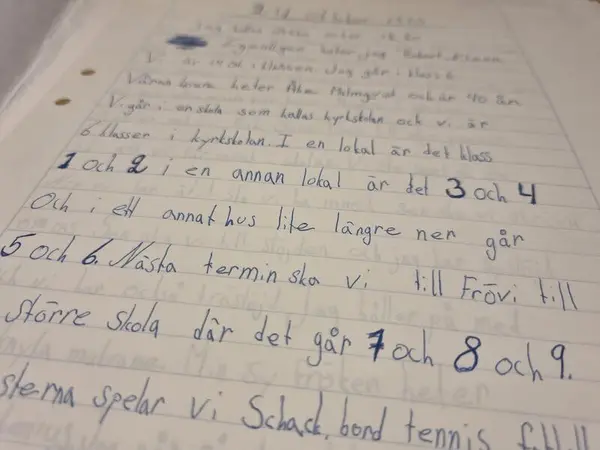 oktober
heter jag Robert
Vi är i klassen. Jag går i klass 6
Våran heter Åke Malmgred och är 40 år.
Vi går i en skola som kallas kyrkskolan och vi är
6 klasser i kyrkskolan. I en lokal är det klass
1 och 2 i en annan lokal är det 3 och 4
Och i ett annat hus lite längre ner går
5 och 6. Nästa termin ska vi till Frövi till
större skola där det går 7 och 8 och 9.
sterna spelar vi Schack, bord tennis